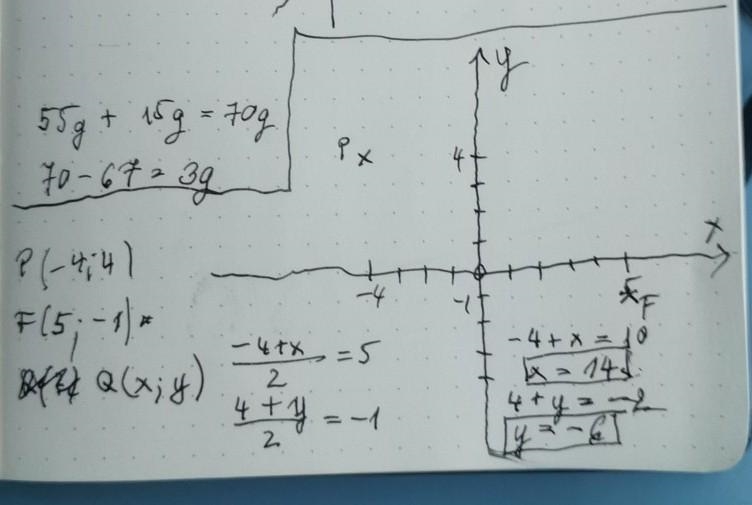 55g + 15g = 70g
70 - 67 = 3g
y
P x
4
x
-4
-1
5
x F
P(-4; 4)
F(5; -1)
Q(x; y)
-4+x
2
= 5
4 + y
2
= -1
-4 + x = 10
x = 14
4 + y = -2
y = -6